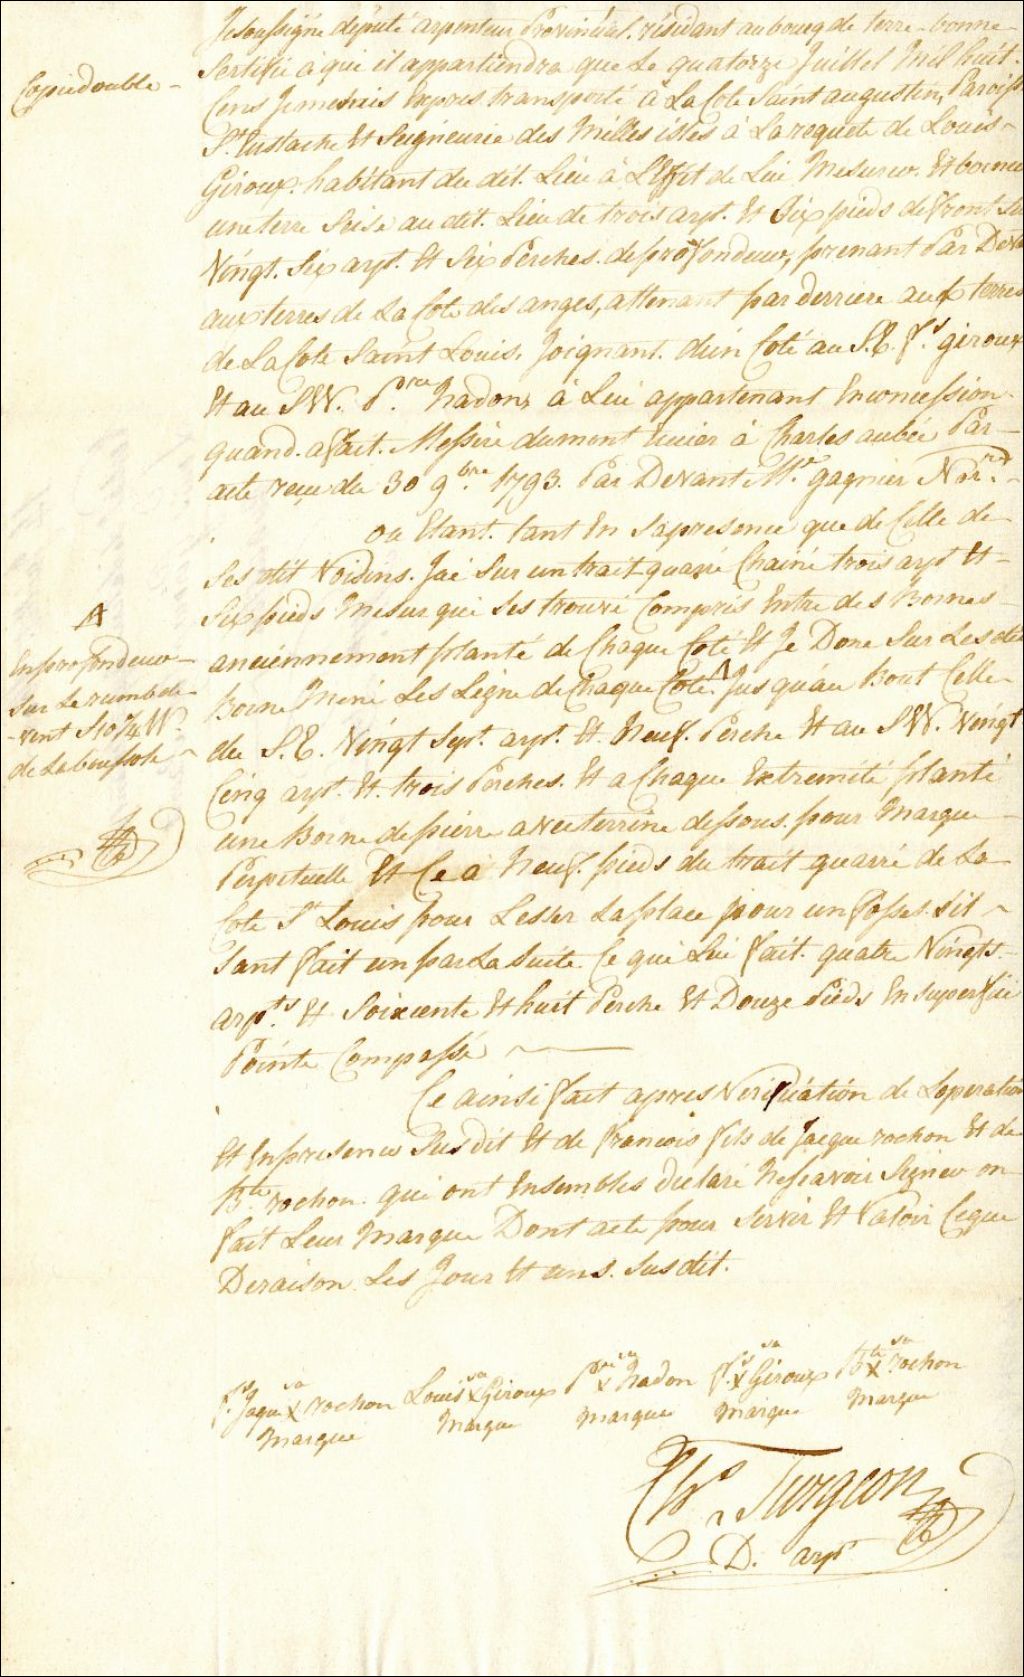 Copie double -
Je soussigné député arpenteur Provincial. résidant au bourg de terre-bonne
Sertifie à qui il appartiendra que Le quatorze Juillet Mil huit.
Cens Je me suis Expres transporté à La Cote Saint augustin, Paroiss
St Eustache Et Seigneurie des Milles isles à La requete de Louis
Giroux. habitant du dit. Lieu à L'Effet de Lui Mesurer. Et borner
une terre Seise au dit. Lieu de trois arpt. Et Six pieds de front Su
Vingt. Six arpt. Et Six Perches. de profondeur, prenant Par Deva
aux terres de La Cote des anges, attenant par derriere aux terres
de La Cote Saint Louis. Joignant. d'un Coté au S.E. fs. giroux
Et au SW. Prre Nadon, à Lui appartenant En concession
quand. a fait. Messire dumont à Charles aubée Par
acte reçu du 30 9bre 1793. Par Devant Mr. gagnier Notre.
ou Etant. tant En Sa presence que de Celle de
Ses dit Voisins. Jai Sur un trait quarré Chainé trois arpt Et
Six pieds Mesur qui Ses trouvé Compris Entre des Bornes
anciennement planté de Chaque Coté Et Je Donc Sur Les dite
Borne Mené Les Ligne de Chaque Coté A Jusqu'au Bout Celle
A
En profondeur
Sur Le rumb de
vent S10¼W.
de La boussole
du S.E. Vingt Sept. arpt. Et. Neuf. Perche Et au SW. Vingt
Cinq arpt. Et. trois Perches. Et a Chaque Extremité planté
une Borne de pierre avec terrine dessous. pour Marque
Perpetuelle Et Ce a Neuf. pieds du trait quarré de La
Cote St Louis pour Lesser La place pour un fosses. Sil
Sant fait un par La Suite. Ce qui Lui fait. quatre Vingts.
arpts. Et Soixcente Et huit Perche Et Douze Pieds En Superficie
Pointe Compassé
Ce ainsi fait apres Verifiication de Loperation
Et En presence Susdit Et de francois fils de Jacque rochon Et de
Bte rochon. qui ont Ensembles declaré Ne Scavoir Signer on
fait Leur Marque Dont acte pour Servir Et Valoir Ce que
De raison Les Jour Et ans. Susdit.
fs. Jaque sa X rochon Marque
Louis sa X Giroux Marque
Prre sa X Nadon Marque
fs. sa X Giroux Marque
Bte sa X rochon Marque
Chs Turgeon
D. arpr